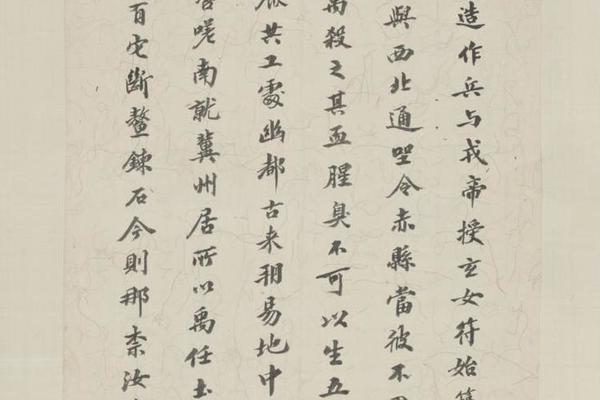 造作兵与戎帝授玄女符始
與西北通坐令赤縣當彼不
禹殺之其血腥臭不可以生五
共工處幽都古来朔易地中
嗟南就冀州居所以禹任土
百宅斷鼇鍊石今則那柰汝